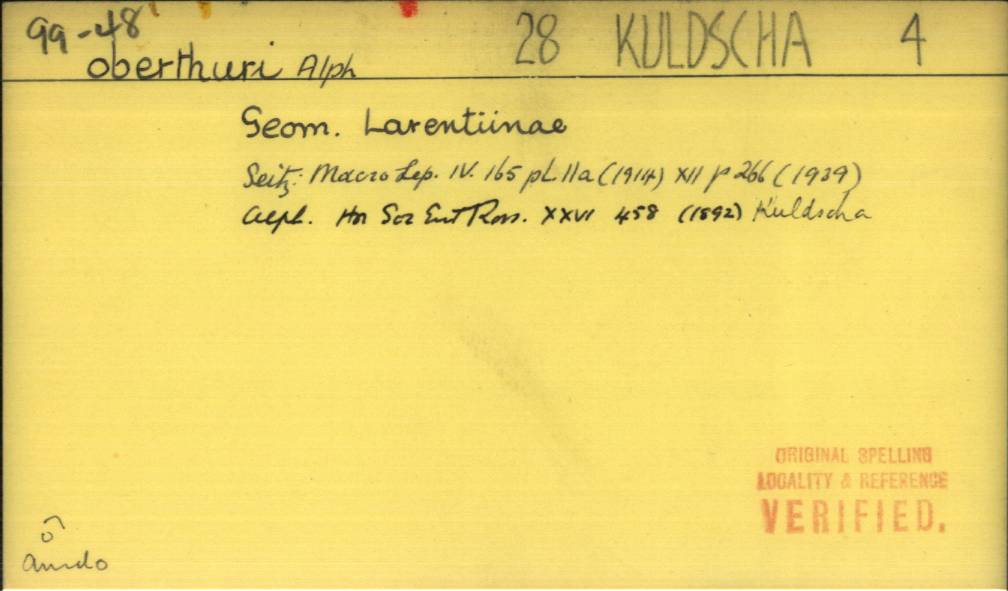 99-48
oberthuri Alph 28 KULDSCHA 4
Geom. Larentiinae
Seitz: Macro Lep. IV. 165 pl. 11a (1914) XII p 266 (1939)
Alph. Hor Soc Ent Ross. XXVI 458 (1892) Kuldscha
ORIGINAL SPELLING
LOCALITY & REFERENCE
VERIFIED.